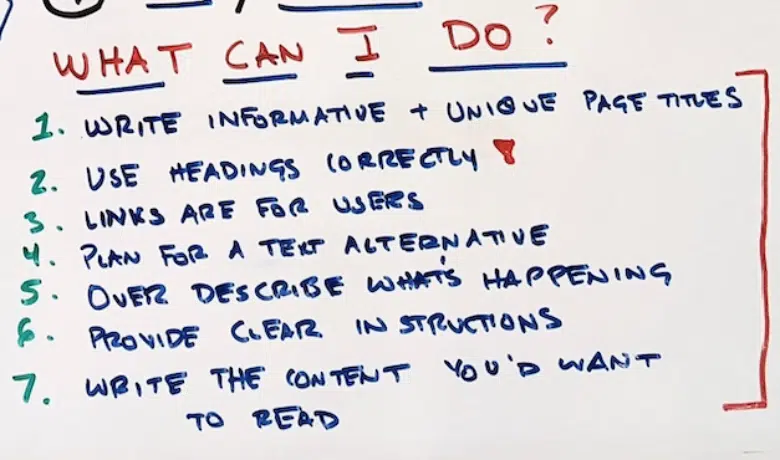 WHAT CAN I DO?
1. WRITE INFORMATIVE + UNIQUE PAGE TITLES
2. USE HEADINGS CORRECTLY
3. LINKS ARE FOR USERS
4. PLAN FOR A TEXT ALTERNATIVE
5. OVER DESCRIBE WHAT'S HAPPENING
6. PROVIDE CLEAR INSTRUCTIONS
7. WRITE THE CONTENT YOU'D WANT
TO READ